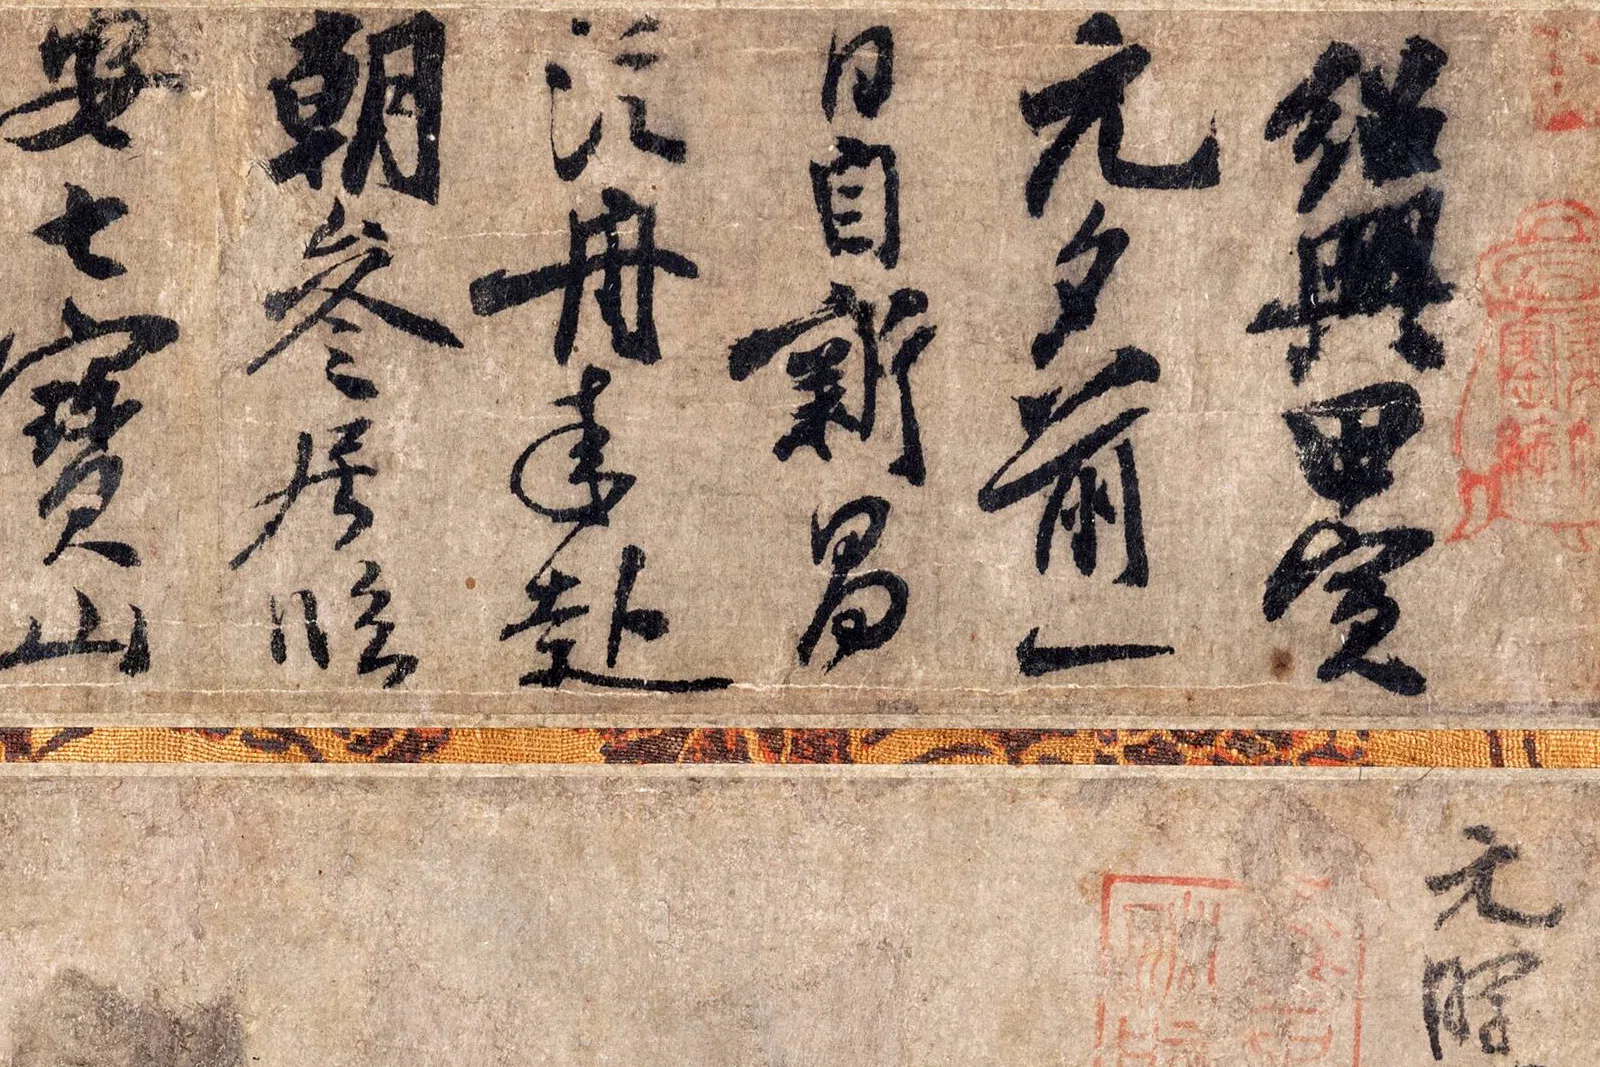 紹興甲寅
元夕前一
日自新昌
泛舟來赴
朝參居臨
安七寶山
元暉